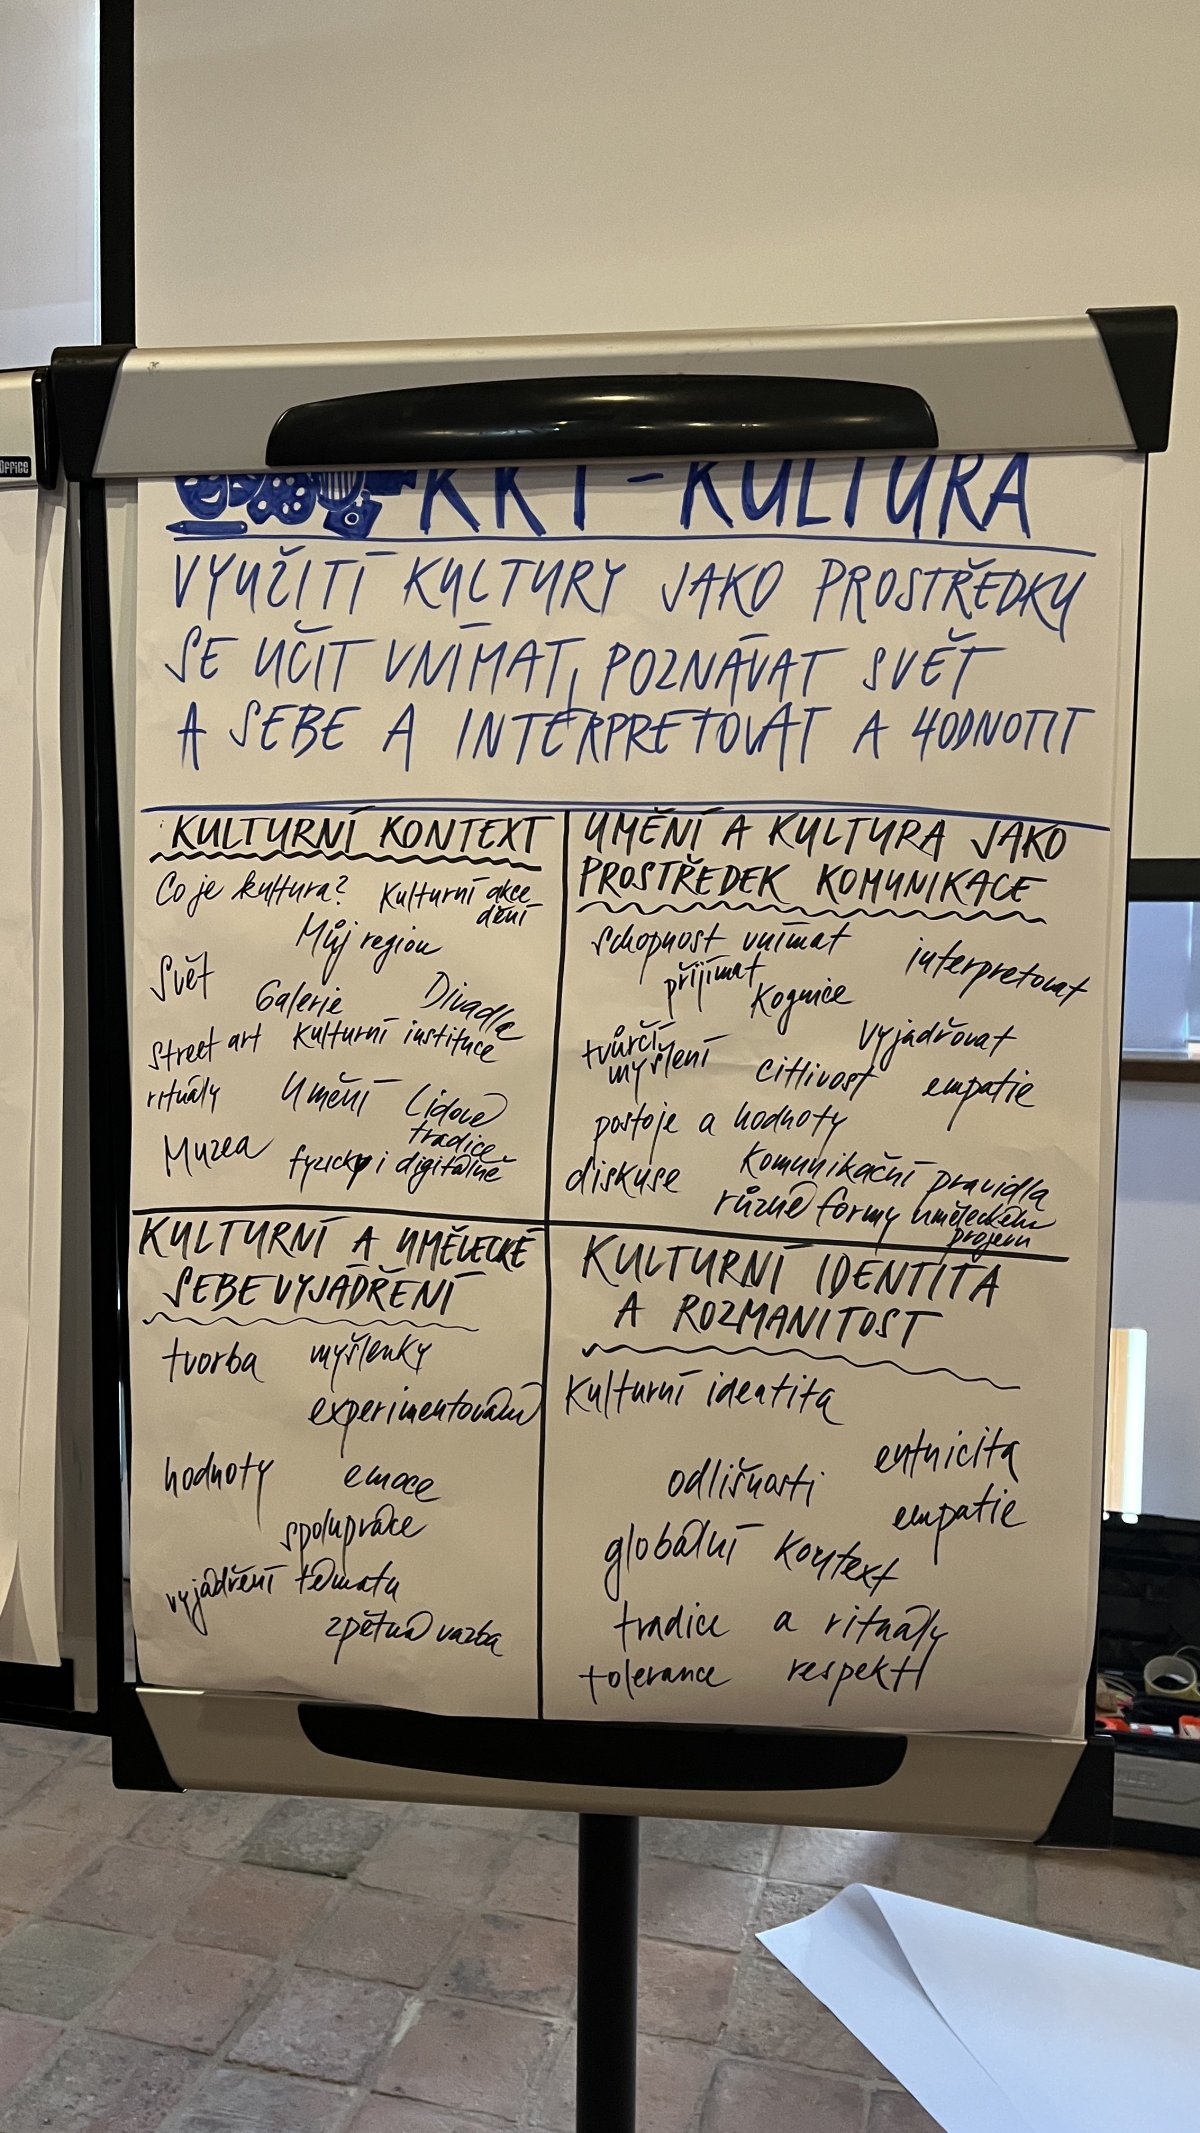 Office
KKT - KULTURA
VYUŽITÍ KULTURY JAKO PROSTŘEDKY
SE UČIT VNÍMAT, POZNÁVAT SVĚT
A SEBE A INTERPRETOVAT A HODNOTIT
KULTURNÍ KONTEXT
Co je kultura?
Kulturní akce
dění
Můj region
Svět
Galerie
Divadla
street art
Kulturní instituce
rituály
Umění
Lidové
tradice
Muzea
fyzicky i digitálně
UMĚNÍ A KULTURA JAKO
PROSTŘEDEK KOMUNIKACE
schopnost vnímat
přijímat
interpretovat
Kognice
tvůrčí
myšlení
vyjadřovat
citlivost
empatie
postoje a hodnoty
diskuse
Komunikační pravidla
různé formy uměleckého
projevu
KULTURNÍ A UMĚLECKÉ
SEBEVYJÁDŘENÍ
tvorba
myšlenky
experimentování
hodnoty
emoce
spolupráce
vyjádření tématu
zpětná vazba
KULTURNÍ IDENTITA
A ROZMANITOST
Kulturní identita
odlišnosti
entnicita
empatie
globální kontext
tradice a rituály
tolerance
respekt!